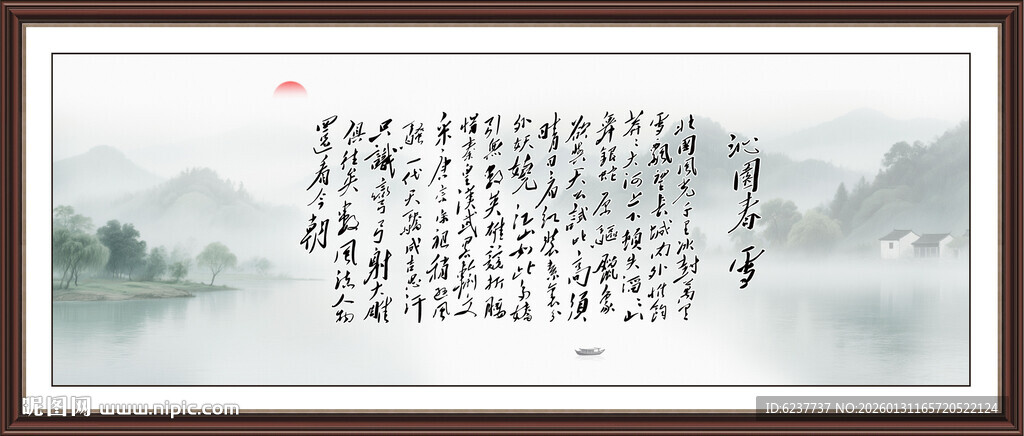 沁園春 雪
北國風光千里冰封萬里
雪飄望長城内外惟餘
莽莽大河上下頓失滔滔山
舞銀蛇原驅臘象
欲與天公試比高須
晴日看紅裝素裹分
外妖嬈江山如此多嬌
引無數英雄競折腰
惜秦皇漢武略輸文
采唐宗宋祖稍遜風
騷一代天驕成吉思汗
只識彎弓射大雕
俱往矣數風流人物
還看今朝
昵图网 www.nipic.com
ID:6237737 NO:20260131165720522124